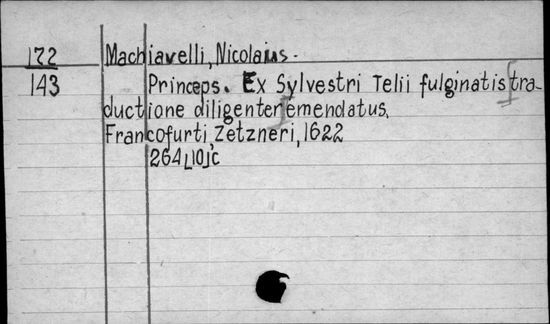 172 Machiavelli, Nicolaius.
143 Princeps. Ex Sylvestri Telii fulginatis tra-
ductione diligenter emendatus.
Francofurti, Zetzneri, 1622
264L10Jc